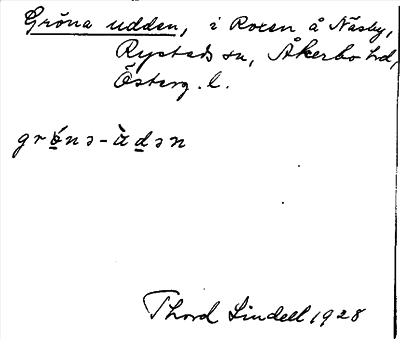 Gröna udden, i Roxen å Näsby,
Rystads sn, Åkerbo hd,
Österg. l.
grø̀nə-ùdən
Thord Lindell 1928